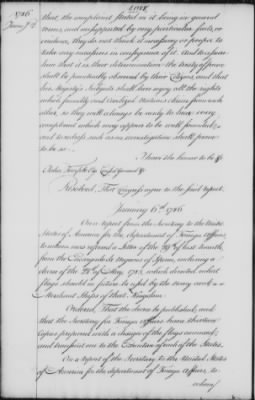 1786
Jany 5th
that, the complaint stated in it being in general
terms, and unsupported by any particular facts, or
evidence, they do not think it necessary or proper to
take any measures in consequence of it. And to inform
him that it is their determination the treaty of peace
shall be punctually observed by their Citizens, and that
his Majesty's Subjects shall here enjoy all the rights
which friendly and civilized Nations claim from each
other, so they will always be ready to hear every
complaint which may appear to be well founded,
and to redress such as on investigation shall prove
to be so.
I have the honor to be &c
Resolved, That Congress agree to the said report.
January 6th 1786.
On a report from the Secretary to the United
States of America for the department of Foreign Affairs,
to whom was referred a Letter of the of last month,
from the Encargado de Negocios of Spain, enclosing a
decree of the 28th of May, 1785, which directed what
flags should in future be used by the navy and
Merchant Ships of that Kingdom.
Ordered, That the decree be published, and
that the Secretary for Foreign Affairs have thirteen
Copies prepared with a design of the flags annexed,
and transmit one to the Executive of each of the States.
On a report of the Secretary to the United States
of America for the department of Foreign Affairs, to
whom